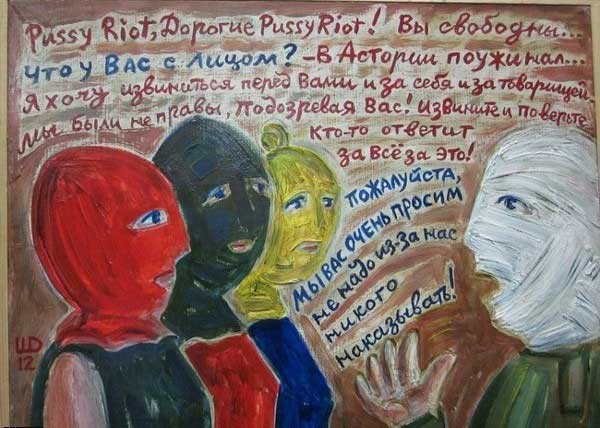 Pussy Riot, Дорогие Pussy Riot! Вы свободны...
Что у Вас с лицом? – В Астории поужинал...
Я хочу извиниться перед Вами и за себя и за товарищей
мы были не правы, подозревая Вас! извините и поверьте
кто-то ответит
за всё за это!
пожалуйста,
мы вас очень просим
не надо из-за нас
никого
наказывать!
ШО
12